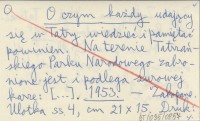 O czym każdy udający
się w Tatry wiedzieć i pamiętać
powinien. Na terenie Tatrzań-
skiego Parku Narodowego zabro-
nione jest i podlega surowej
karze: [...]. 1953. - Zakopane.
Ulotka ss. 4, cm 21 x 15. Druk.